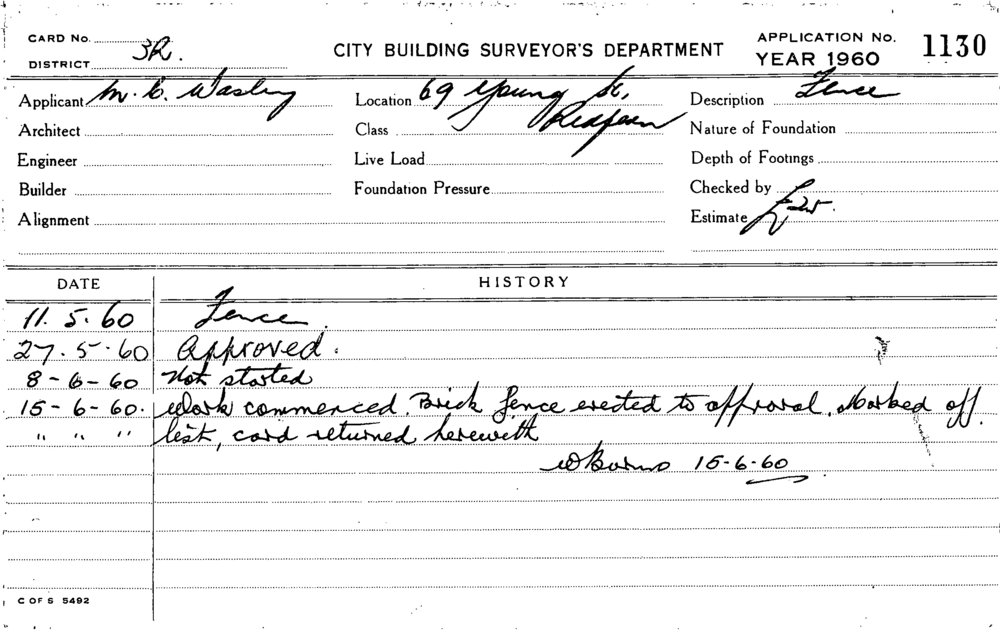 CARD No.
DISTRICT 3R.
CITY BUILDING SURVEYOR'S DEPARTMENT
APPLICATION No. 1130
YEAR 1960
Applicant M. C. Wasley Location 69 Young St, Redfern Description Fence
Architect Class Nature of Foundation
Engineer Live Load Depth of Footings
Builder Foundation Pressure Checked by
Alignment Estimate £25.
DATE HISTORY
11. 5. 60 Fence.
27. 5. 60 Approved.
8-6-60 Not started
15-6-60. Work commenced. Brick fence erected to approval. Marked off
" " " list, card returned herewith
W Burns 15-6-60
C OF S 5492